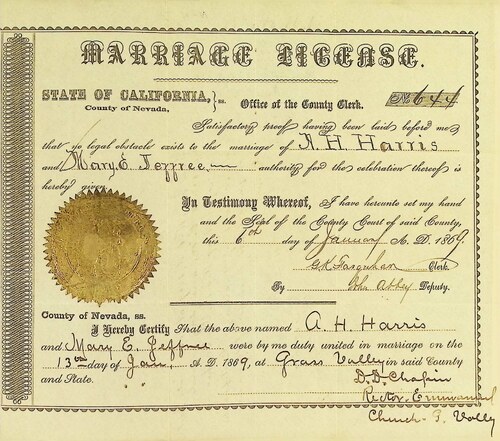 MARRIAGE LICENSE.
STATE OF CALIFORNIA, } ss.
County of Nevada,
Office of the County Clerk.
No 644
Satisfactory proof having been laid before me
that no legal obstacle exists to the marriage of A. H. Harris
and Mary E. Jeffree authority for the celebration thereof is
hereby given
In Testimony Whereof, I have hereunto set my hand
and the Seal of the County Court of said County,
this 6th day of January A. D. 1869.
G.K. Farquhar Clerk.
By John Abbey Deputy.
County of Nevada, ss.
I Hereby Certify That the above named A. H. Harris
and Mary E. Jeffree were by me duly united in marriage on the
13th day of Jan. A. D. 1869, at Grass Valley in said County
and State.
D. D. Chapin
Rector Emmanuel
Church G. Vally